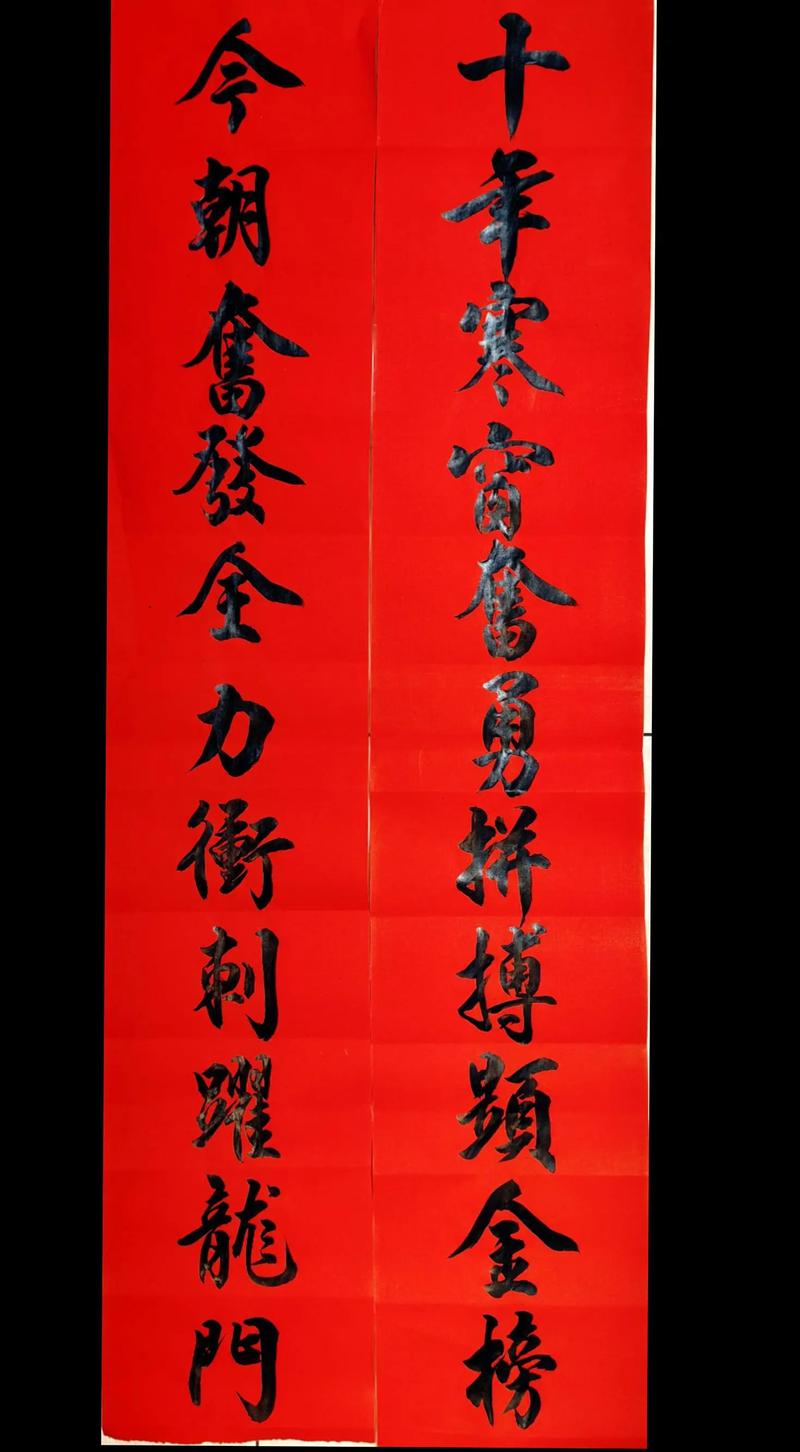 十年寒窗奮勇拼搏顯金榜
今朝奮發全力衝刺躍龍門